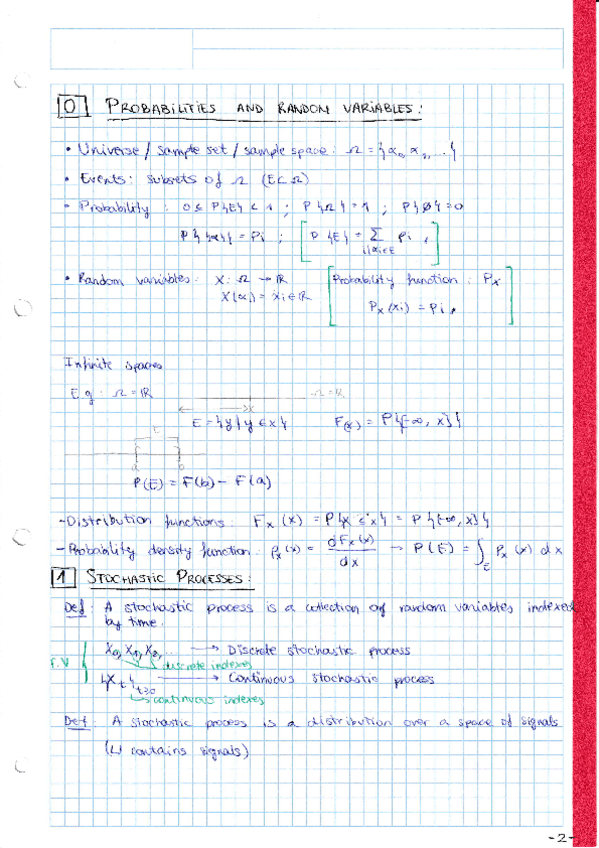 0 PROBABILITIES AND RANDOM VARIABLES:
• Universe / sample set / sample space: Ω = {α₀, α₁, ...}
• Events: subsets of Ω (E⊂Ω)
• Probability: 0 ≤ P{E} < 1 ; P{Ω} = 1 ; P{∅} = 0
P{{αi}} = Pi ; [P{E} = Σ Pi]
i|αi∈E
• Random variables: X: Ω → ℝ [Probability function: Px
X(αi) = xi ∈ ℝ Px(xi) = Pi]
Infinite spaces
E.g: Ω = ℝ
x Ω = ℝ
E = {y | y ≤ x} F(x) = P{(-∞, x]}
E
a b
P(E) = F(b) - F(a)
- Distribution functions: Fx(x) = P{X ≤ x} = P{(-∞, x]}
- Probability density function: Px(x) = dFx(x)/dx → P(E) = ∫E Px(x) dx
1 STOCHASTIC PROCESSES:
Def: A stochastic process is a collection of random variables indexed
by time.
X₀, X₁, X₂, ... → Discrete stochastic process
r.v discrete indexes
{Xt}t≥0 → Continuous stochastic process
continuous indexes
Def: A stochastic process is a distribution over a space of signals
(↳ contains signals)
-2-